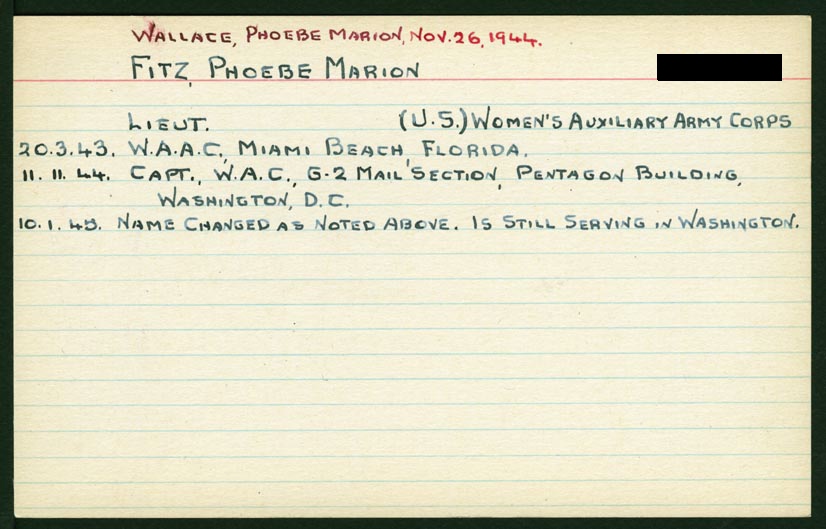 WALLACE, PHOEBE MARION, NOV. 26, 1944.
FITZ, PHOEBE MARION
LIEUT. (U.S.) WOMEN'S AUXILIARY ARMY CORPS
20.3.43. W.A.A.C., MIAMI BEACH, FLORIDA.
11.11.44. CAPT., W.A.C., G-2 MAIL SECTION, PENTAGON BUILDING,
WASHINGTON, D.C.
10.1.45. NAME CHANGED AS NOTED ABOVE. IS STILL SERVING IN WASHINGTON.